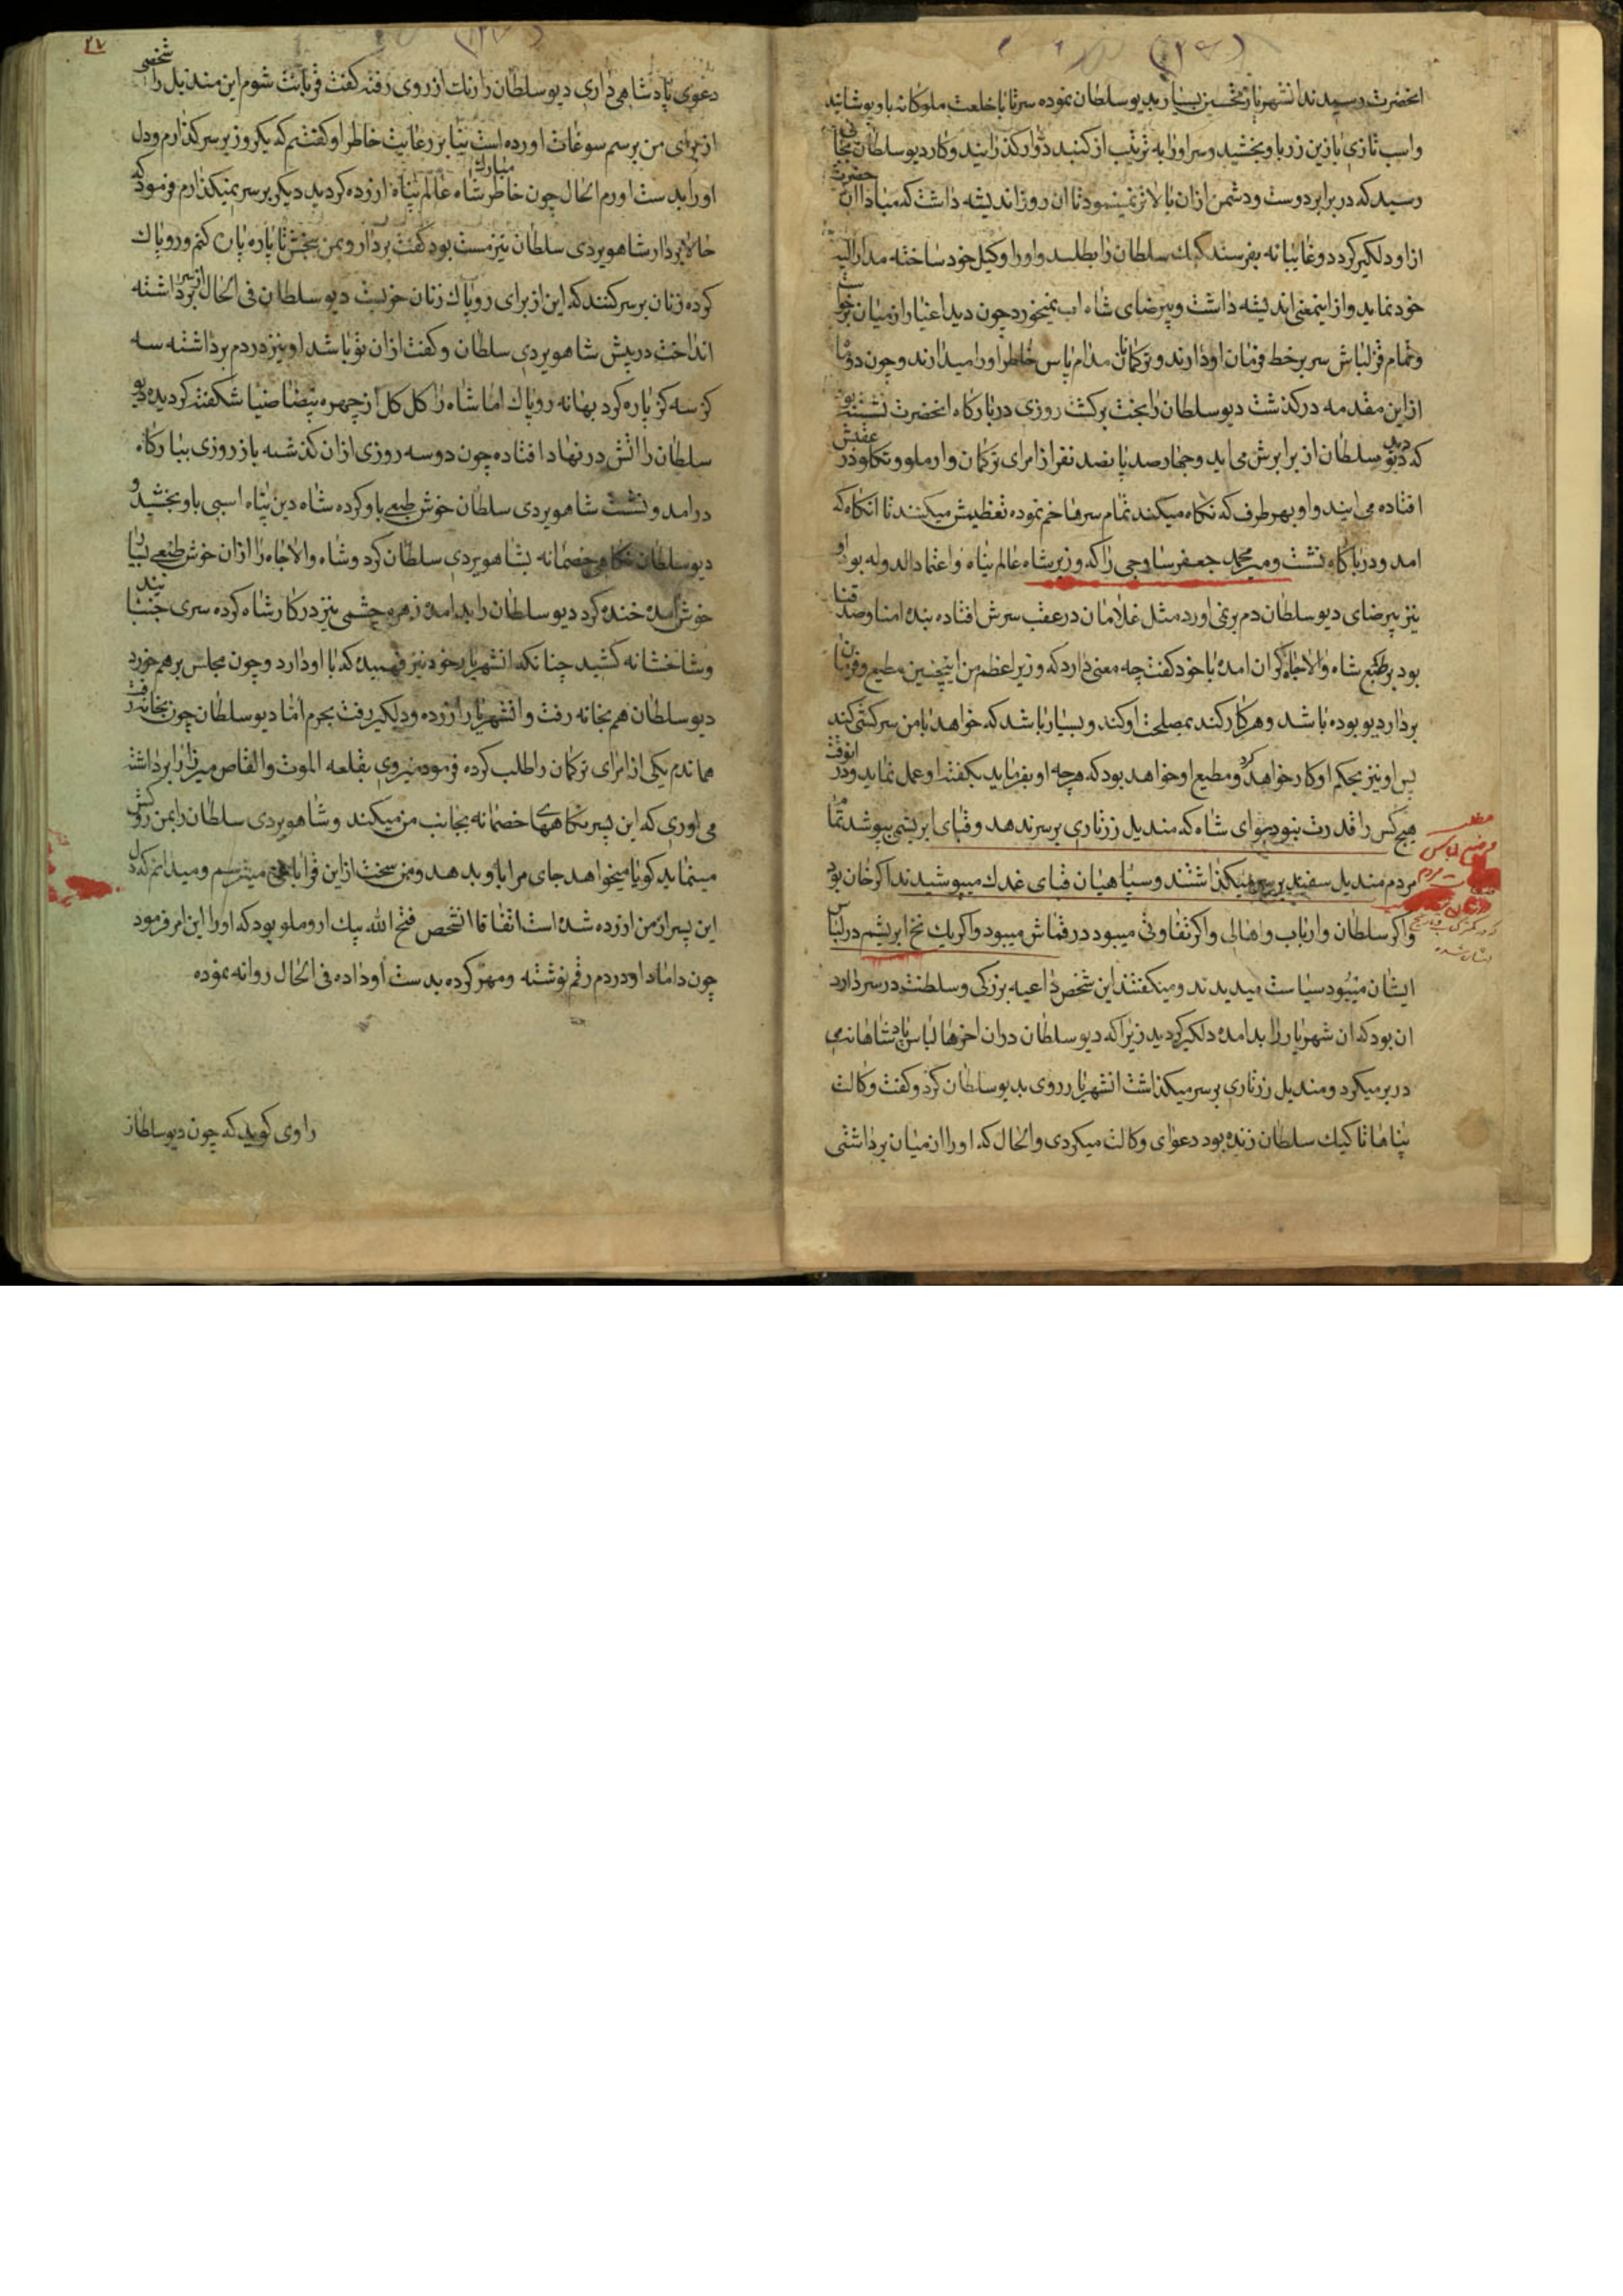 (۱۲۶)
انحضرت رسیدند انشهریار تحسین بسیار بدیو سلطان نموده سرتا پا خلعت ملوکانه باو پوشانید
واسب تازی بازین زر باو بخشید وسر اورا به ترتیب از کنبد دوار کذرانید وکار دیو سلطان بجائی
رسید که در برابر دوست ودشمن ازان بالاتر نمینمود تا ان روز اندیشه داشت که مبادا ان حضرت
ازاو دلکیر کردد وغایبانه بفرستد کپک سلطان را بطلبد واورا وکیل خود ساخته مدار الیه
خود نماید واز اینمعنی اندیشه داشت وبیرضای شاه اب نمیخورد چون دید اغیار از میان برخواست
وتمام قزلباش سر بر خط فرمان او دارند وترکمانان مدام پاس خاطر اورا میدارند وچون دو ماه
از این مقدمه درکذشت دیو سلطان را بخت برکشت روزی در بارکاه انحضرت نشسته بود
که دید دیو سلطان از برابرش می اید وچهارصد پانصد نفر از امرای ترکمان وارملو وتکلو در عقبش
افتاده می ایند واو بهر طرف که نکاه میکند تمام سرها خم نموده تعظیمش میکنند تا انکاه که
امد ودر بارکاه نشست ومیر محمد جعفر ساوجی را که وزیر شاه عالم پناه واعتماد الدوله بود او
نیز بیرضای دیو سلطان دم بر نمی اورد مثل غلامان در عقب سرش افتاده بنده امنا وصدقنا
بود بر طبع شاه والاجاه کران امده با خود کفت چه معنی دارد که وزیر اعظم من اینچنین مطیع وفرمان
بردار دیو بوده باشد وهر کار کند بمصلحت او کند وبسیار باشد که خواهد با من سرکشی کند
پس او نیز بحکم او کار خواهد کرد ومطیع او خواهد بود که هرچه او بفرماید بکفته او عمل نماید ودر انوقت
هیچ کس را قدرت نبود سوای شاه که مندیل زرتاری بر سر نهد وقبای ابریشمی بپوشد تمام
مردم مندیل سفید بر سر میکذاشتند وسپاهیان قبای غدك میپوشیدند اکر خان بود
واکر سلطان وارباب واهالی واکر تفاوتی میبود در قماش میبود واکر یك نخ ابریشم در لباس
ایشان میبود سیاست میدیدند ومیکفتند این شخص داعیه بزرکی وسلطنت در سر دارد
ان بود که ان شهریار را بد امده دلکیر کردید زیرا که دیو سلطان دران اخرها لباس پادشاهانه
در بر میکرد ومندیل زرتاری بر سر میکذاشت انشهریار روی بدیو سلطان کرد وکفت وکالت
پناها تا کپك سلطان زنده بود دعوای وکالت میکردی والحال که اورا از میان برداشتی
مطلب
لباس
مردم
(۱۲۷)
۲۷
دعوی پادشاهی داری دیو سلطان را رنك از روی رفته کفت قربانت شوم این مندیل را شخصی
از برای من برسم سوغات اورده است بنا بر رعایت خاطر او کفتم که یکروز بر سر کذارم ودل
اورا بدست اورم الحال چون خاطر مبارك شاه عالم پناه ازرده کردید دیکر بر سر نمیکذارم فرمود که
حالا بردار شاهویردی سلطان نیز مست بود کفت بردار وبمن بخش تا پاره پاره کنم وروپاك
کرده زنان بر سر کنند که این از برای روپاك زنان خوبست دیو سلطان فی الحال از سر برداشته
انداخت در پیش شاهویردی سلطان وکفت ازان تو باشد او نیز دردم برداشته سه
کز سه کز پاره کرد بهانه روپاك اما شاه را کل کل از چهره بیضا ضیا شکفته کردیده دیو
سلطان را اتش در نهاد افتاده چون دو سه روزی ازان کذشته باز روزی ببارکاه
درامد ونشست شاهویردی سلطان خوش طبعی باو کرده شاه دین پناه اسبی باو بخشید و
دیو سلطان نکاهی خصمانه بشاهویردی سلطان کرد وشاه والاجاه را ازان خوش طبعی بسیار
خوش امده خنده کرد دیو سلطان را بد امده زهره چشمی نیز در کار شاه کرده سری جنبانید
وشاخشانه کشید چنانکه انشهریار خود نیز فهمیده که با او دارد وچون مجلس برهم خورد
دیو سلطان هم بخانه رفت وانشهریار ازرده ودلکیر رفت بحرم امّا دیو سلطان چون بخانه رفت
هماندم یکی از امرای ترکمان را طلب کرده فرمود میروی بقلعه الموت والقاص میرزا را برداشته
می اوری که این پسر نکاههای خصمانه بجانب من میکند وشاهویردی سلطان را بمن روکش
مینماید کویا میخواهد جای مرا باو بدهد ومن سخت ازاین قرا باغی میترسم ومیدانم که دل
این پسر از من ازرده شده است اتفاقا انشخص فتح الله بیك ارملو بود که اورا این امر فرمود
چون داماد او دردم رقم نوشته ومهر کرده بدست او داده فی الحال روانه نموده
راوی کوید که چون دیو سلطان